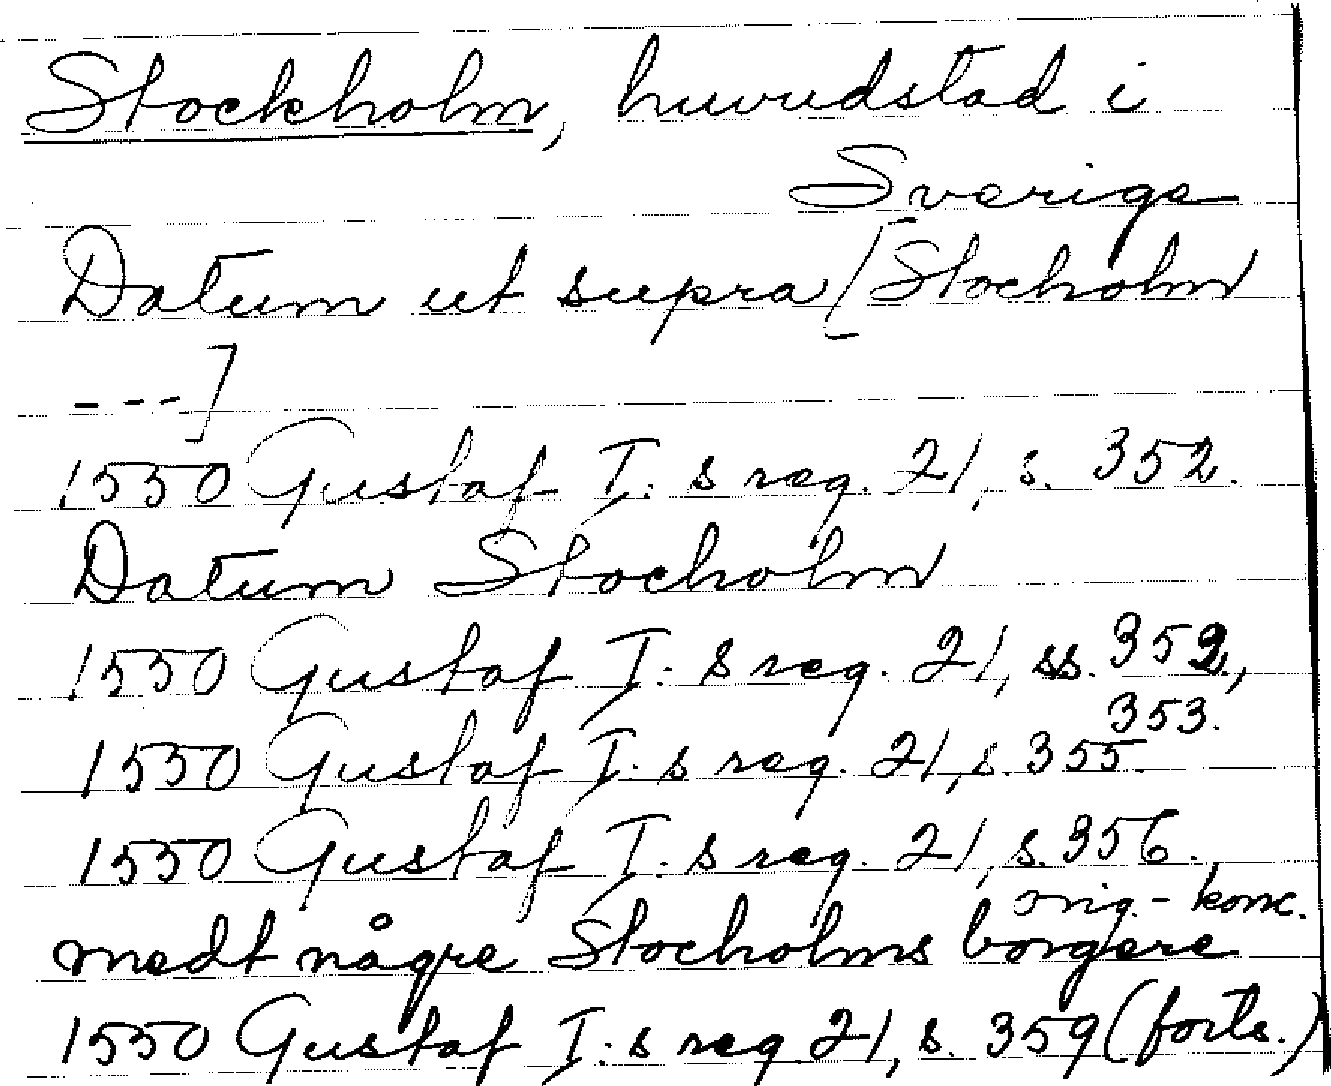 Stockholm, huvudstad i
Sverige
Datum ut supra [Stocholm
---]
1550 Gustaf I: s reg. 21, s. 352.
Datum Stocholm
1550 Gustaf I: s reg. 21, ss. 352,
353.
1550 Gustaf I: s reg. 21, s. 355.
1550 Gustaf I: s reg. 21, s. 356.
orig.-konc.
medt någre Stocholms borgere
1550 Gustaf I: s reg 21, s. 359 (forts.)